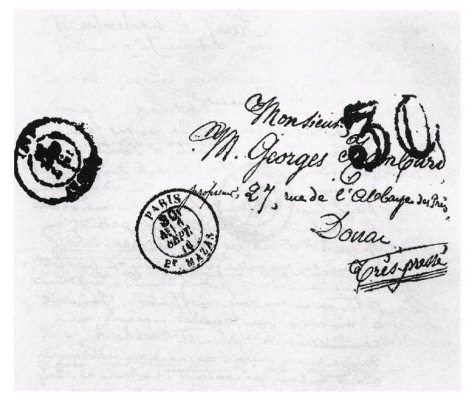 Monsieur
30
M. Georges Izambard,
professeur, 27, rue de l'Abbaye des Prés,
Douai
Très-pressé
PARIS
SEPT.
Bt MAZAS